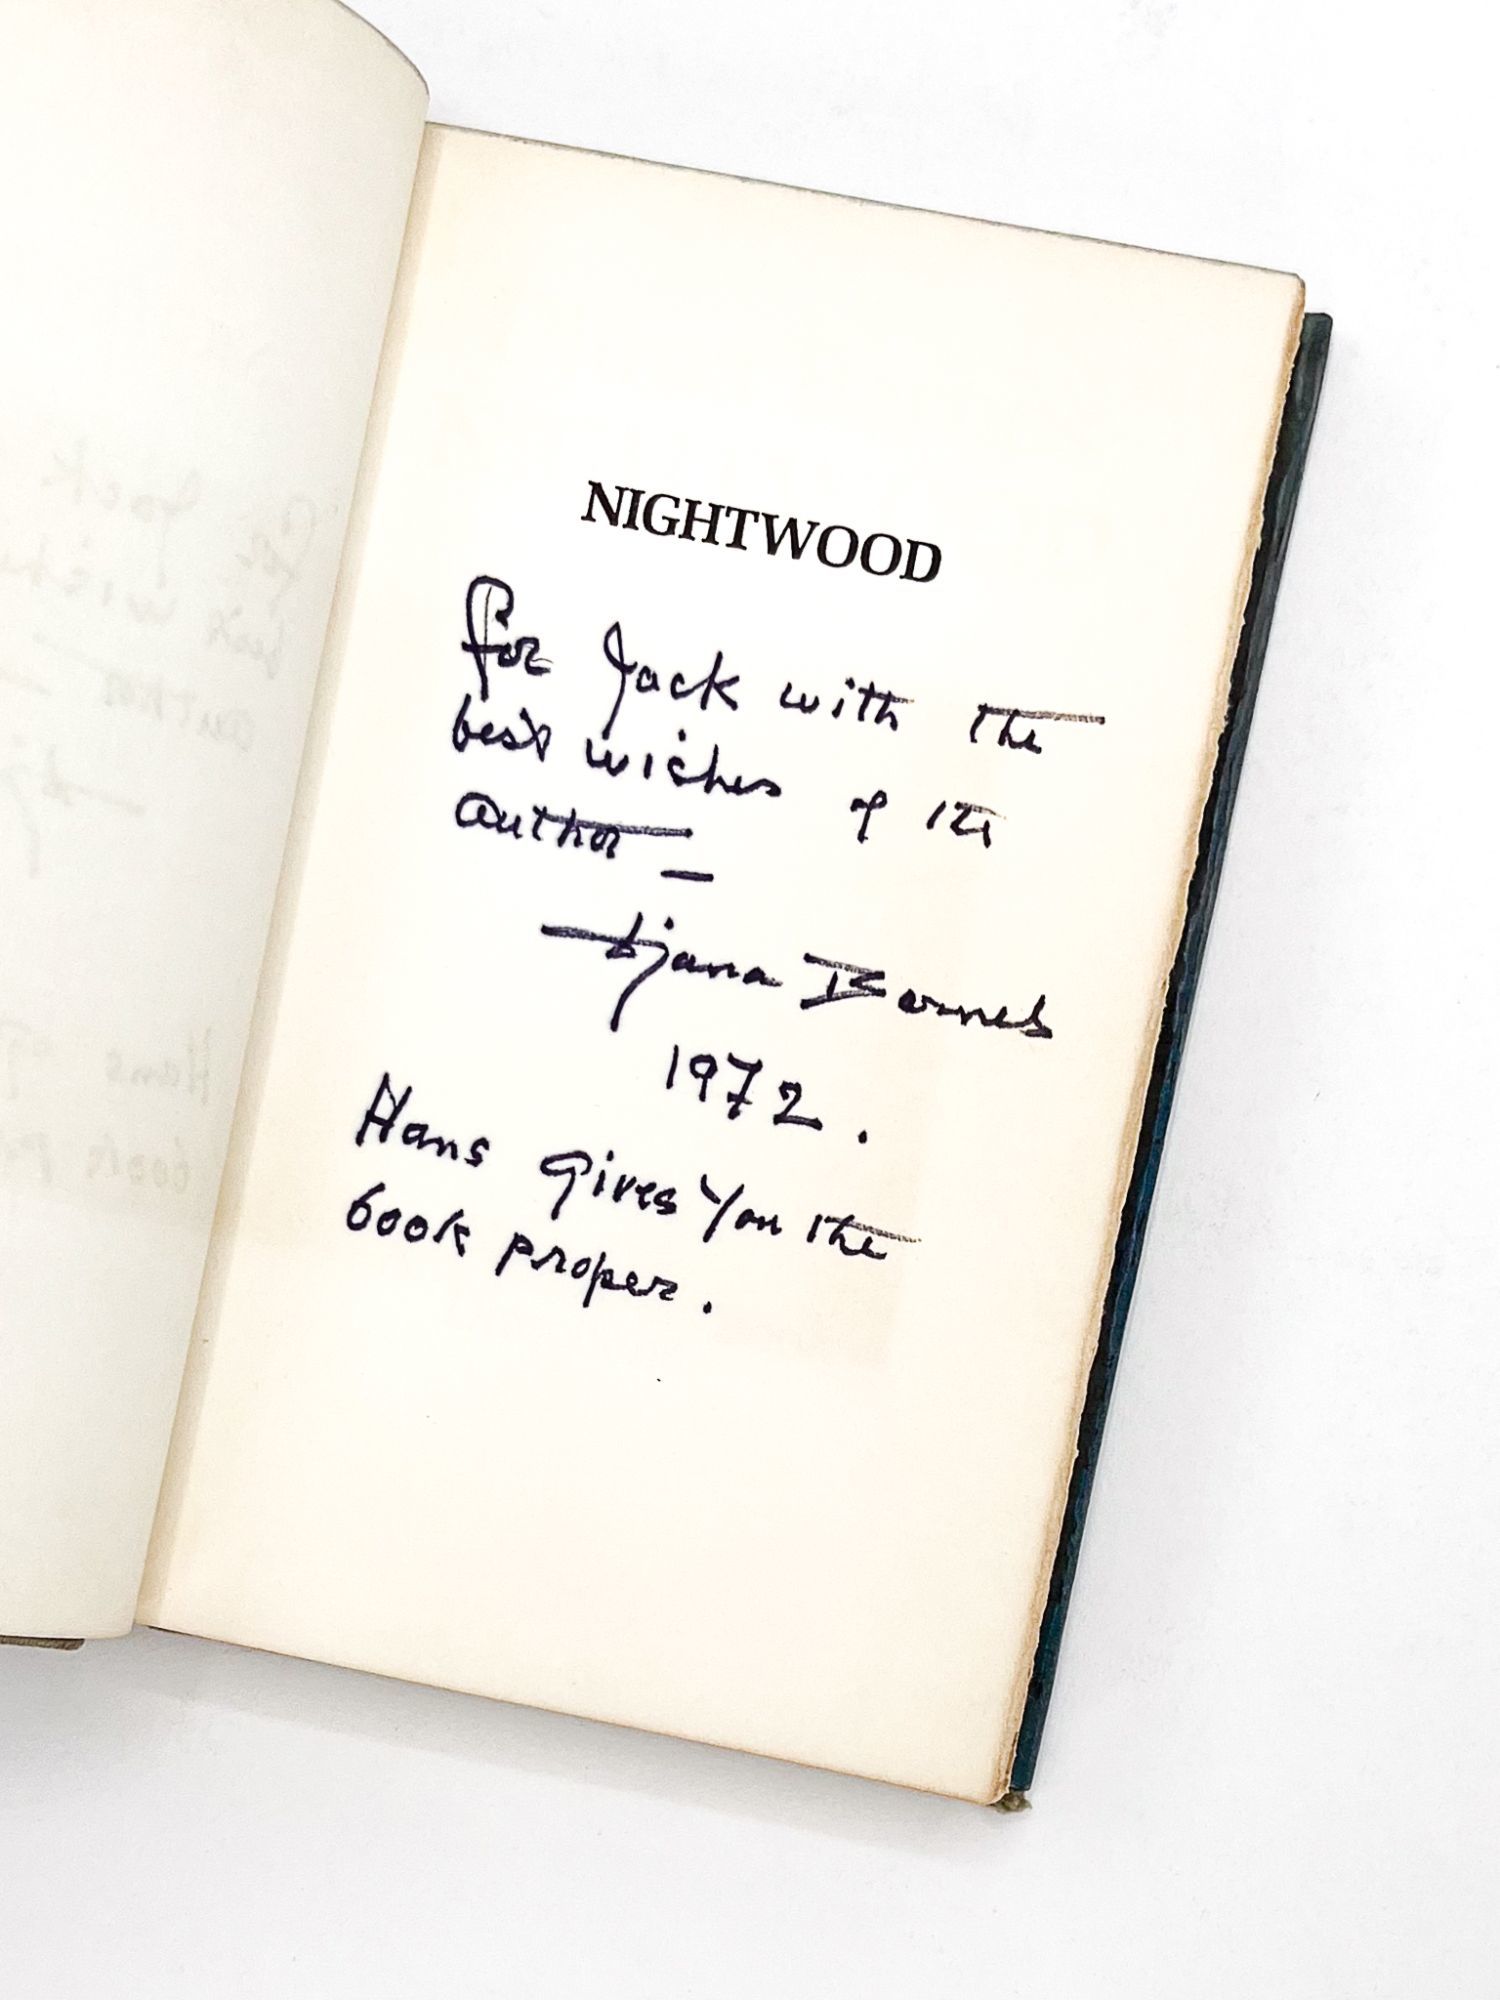 NIGHTWOOD
for Jack with the
best wishes of the
author —
Djuna Barnes
1972.
Hans gives you the
book proper.